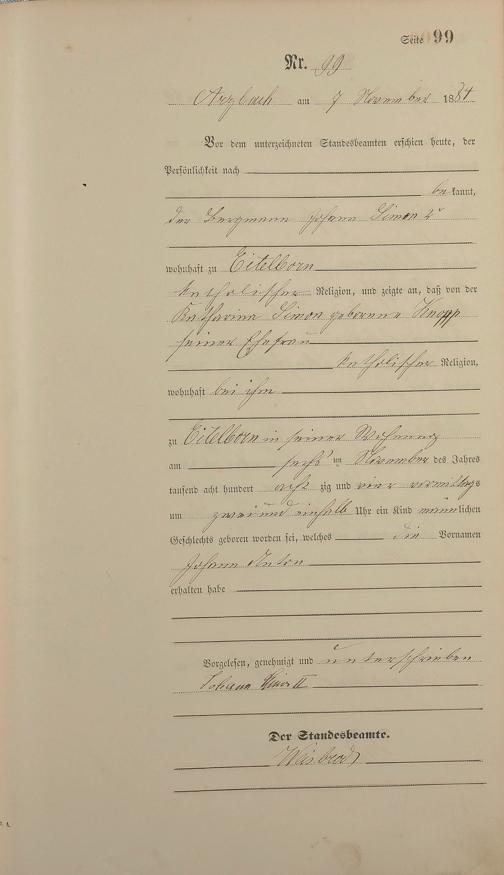 Seite 99
Nr. 99
Arzbach am 7 November 1884
Vor dem unterzeichneten Standesbeamten erschien heute, der
Persönlichkeit nach
be kannt,
der Bergmann Johann Simon 2r
wohnhaft zu Eitelborn
katholischer Religion, und zeigte an, daß von der
Katharina Simon geborene Knopp
seiner Ehefrau
katholischer Religion,
wohnhaft bei ihm
zu Eitelborn in seiner Wohnung
am sechsten November des Jahres
tausend acht hundert acht zig und vier vormittags
um zwei und einhalb Uhr ein Kind männlichen
Geschlechts geboren worden sei, welches die Vornamen
Johann Anton
erhalten habe
Vorgelesen, genehmigt und unterschrieben
Johann Simon II
Der Standesbeamte.
Weisbrod